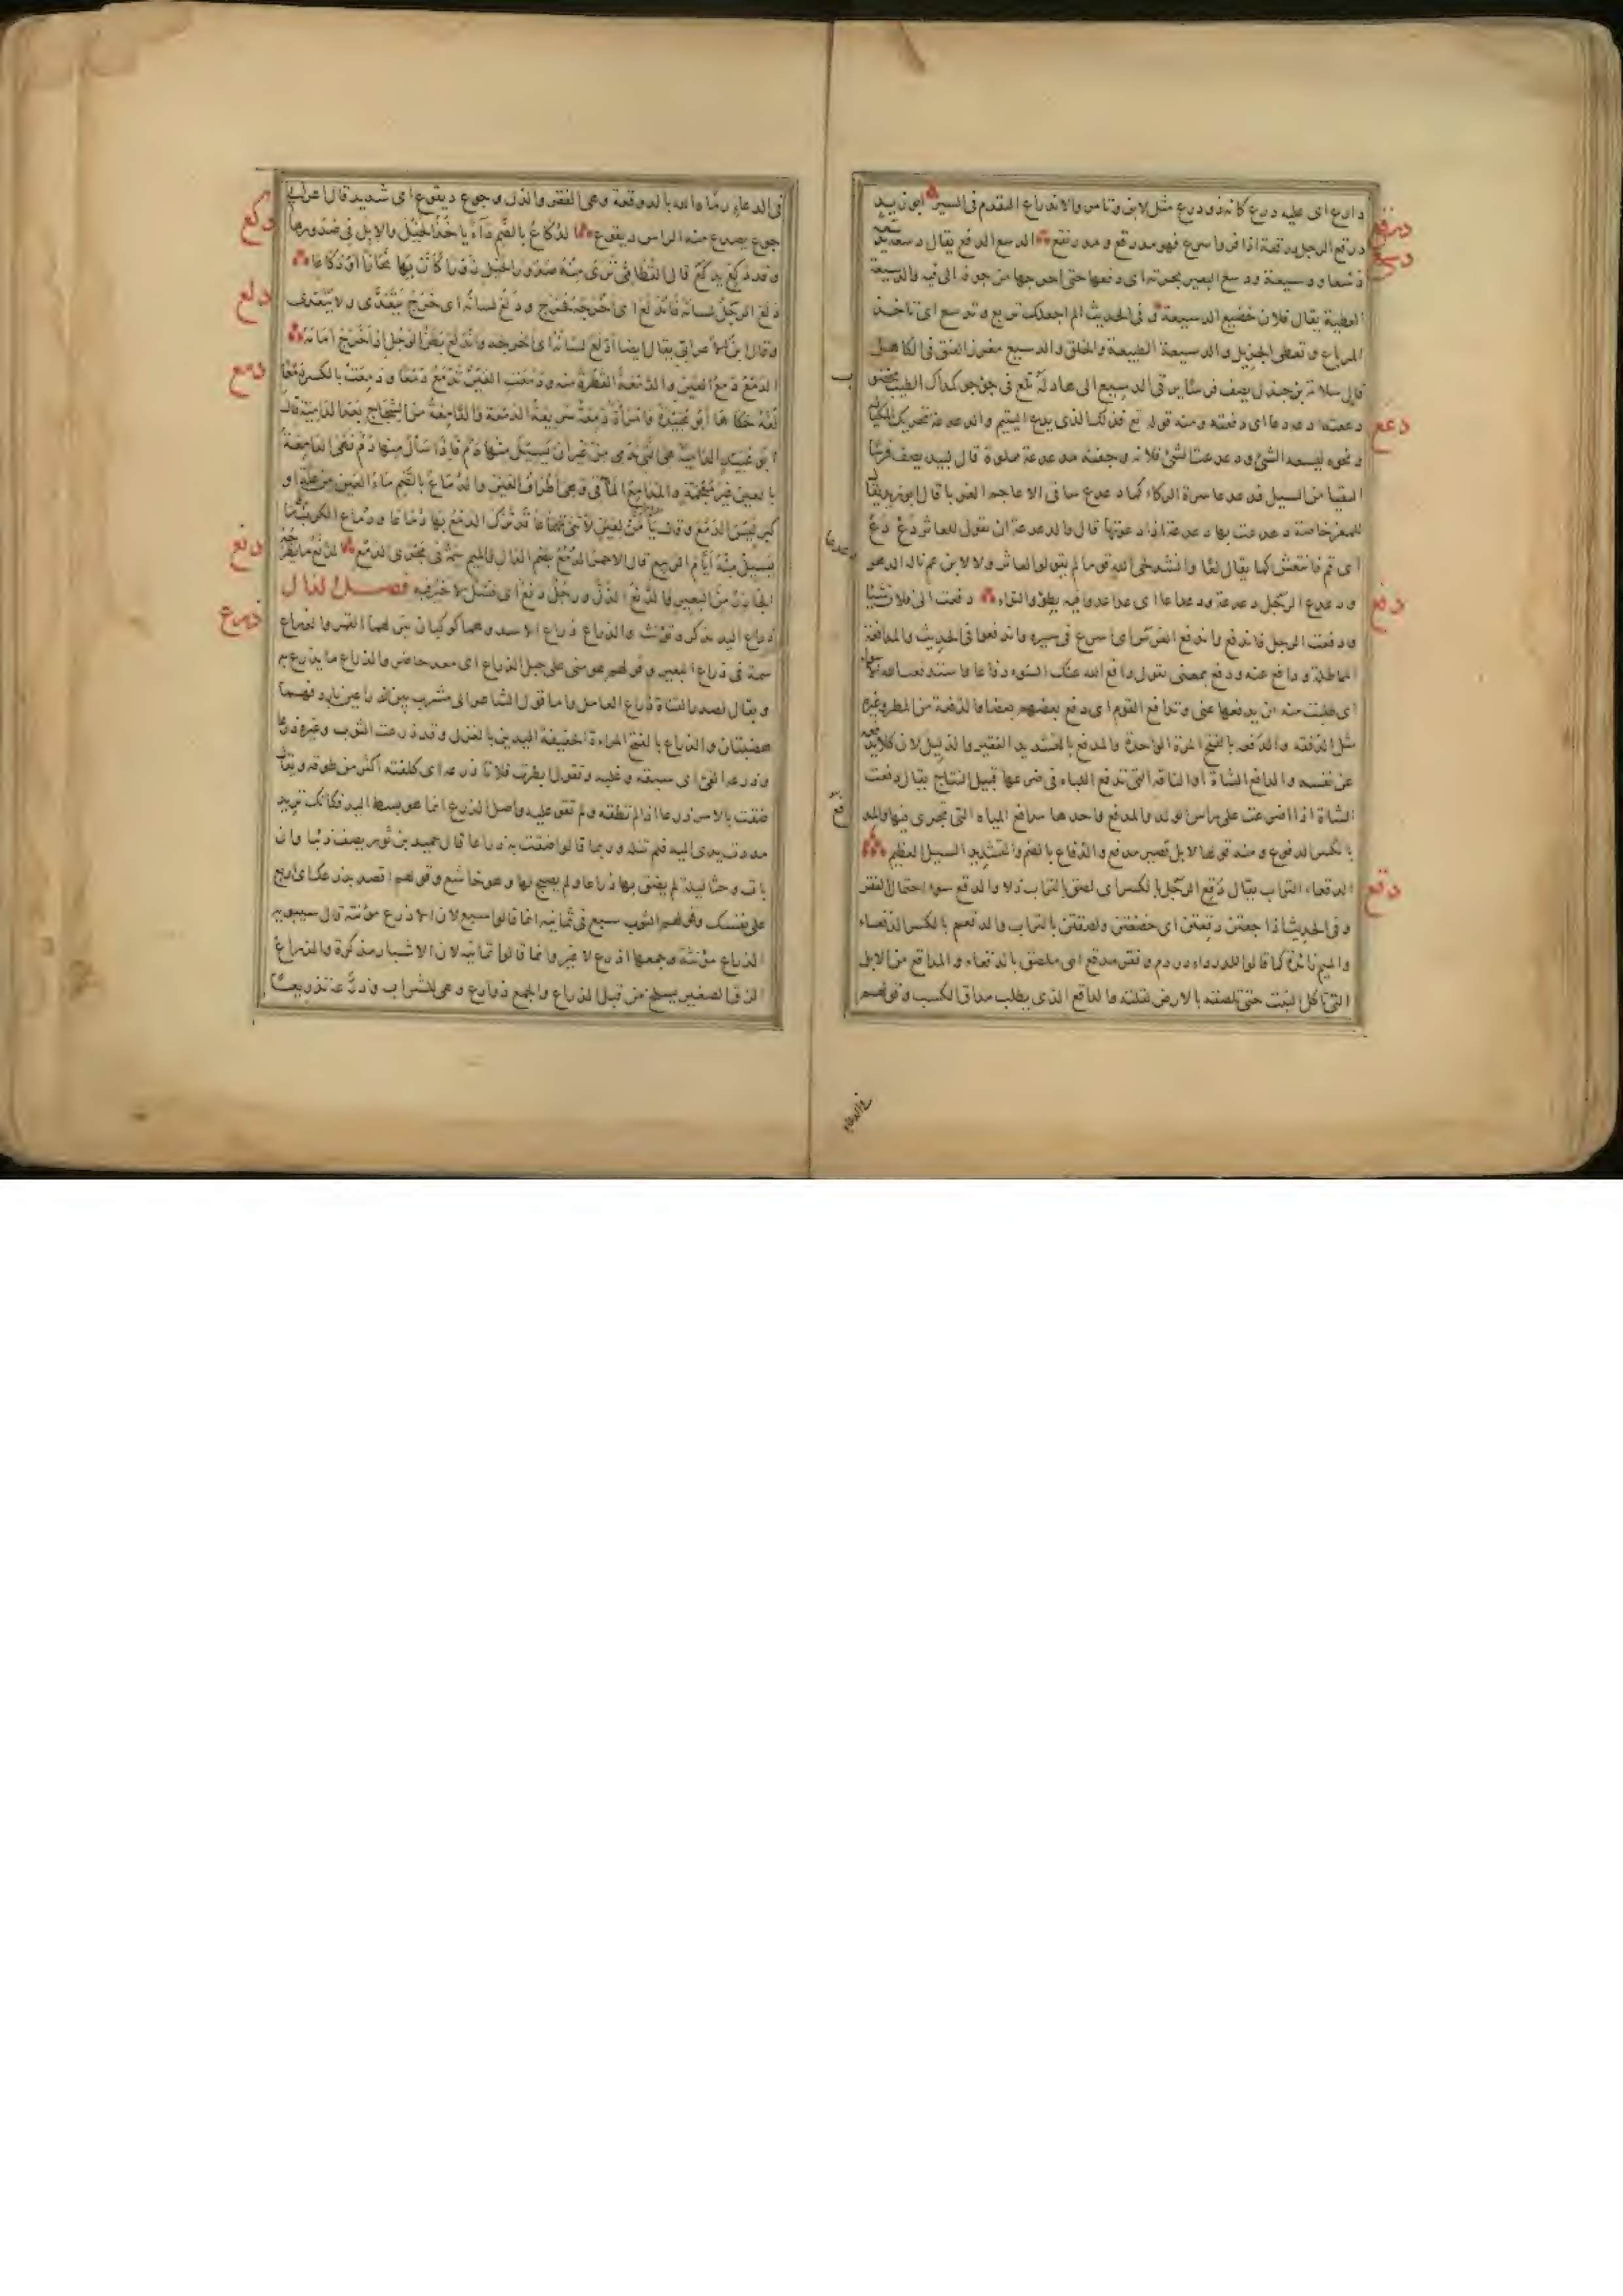 درقع
دارع اى عليه درع كانه ذو درع مثل لابن وتامر والاندراع التقدم فى السير ابو زيد
دسع
درقع الرجل درقعة اذا فر واسرع فهو مدرقع ومدرنقع الدسع الدفع يقال دسعه يدسعه
دسعا ودسيعة ودسع البعير بجرته اى دفعها حتى اخرجها من جوفه الى فيه والدسيعة
العطية يقال فلان ضخم الدسيعة وفى الحديث الم اجعلك تربع وتدسع اى تاخذ
المرباع وتعطى الجزيل والدسيعة الطبيعة والخلق والدسيع مغرز العنق فى الكاهل
قال سلامة بن جندل يصف فرسا يرقى الدسيع الى هاد له تلع فى جؤجؤ كمداك الطيب مخضوب
دعع
دععته ادعه دعا اى دفعته ومنه قوله تع فذلك الذى يدع اليتيم والدعدعة تحريك المكيال
ونحوه ليسعه الشئ ودعدعت الشئ ملأته وجفنة مدعدعة مملوة قال لبيد يصف
من السيل فدعدعا سرة الركاء كما دعدع ساقى الاعاجم الغربا قال ابو زيد يقال
للمعز خاصة دعدعت بها دعدعة اذا دعوتها قال والدعدعة ان تقول للعاثر دع دع
اى قم فانتعش كما يقال لعا وانشد لحى الله قوما لم يقولوا لعاثر ولا لابن عم ناله الدهر
دعدعا
دفع
ودعدع الرجل دعدعة ودعداعا اى عدا عدوا فيه بطؤ والتواء دفعت الى فلان شيئا
ودفعت الرجل فاندفع واندفع الفرس اى اسرع فى سيره واندفعوا فى الحديث والمدافعة
المماطلة ودافع عنه ودفع بمعنى يقول دافع الله عنك السوء دفاعا واستدفعت الله الاسواء
اى طلبت منه ان يدفعها عنى وتدافع القوم اى دفع بعضهم بعضا والدفعة من المطر وغيره
مثل الدفقة والدفعة بالفتح المرة الواحدة والمدفع بالتشديد الفقير والذليل لان كلا يدفعه
عن نفسه والدافع الشاة او الناقة التى تدفع اللباء فى ضرعها قبيل النتاج يقال دفعت
الشاة اذا اضرعت على راس الولد والمدفع واحدها مدافع المياه التى تجرى فيها والمدفع
بالكسر الدفوع ومنه قولها لابل قصير مدفع والدفاع بالضم والتشديد السيل العظيم
دقع
الدقعاء التراب يقال دقع الرجل بالكسر اى لصق بالتراب ذلا والدقع سوء احتمال الفقر
وفى الحديث اذا جعتن دقعتن اى خضعتن ولصقتن بالتراب والدقعم بالكسر الدقعاء
والميم زائدة كما قالوا للدرداء دردم وفقر مدقع اى ملصق بالدقعاء والمداقع من الابل
التى تاكل النبت حتى تلصقه بالارض لقلته والداقع الذى يطلب مداق الكسب وقولهم
فى الدعاء
فى الدعاء رماه الله بالدوقعة وهى الفقر والذل وجوع ديقوع اى شديد قال اعرابى
دكع
جوع يصدع منه الراس ديقوع الدكاع بالضم داء ياخذ الخيل والابل فى صدورها
وقد دكع يدكع قال القطامى ترى منه صدور الخيل زورا كأن بها نحازا او دكاعا
دلع
دلع الرجل لسانه فاندلع اى اخرجه فخرج ودلع لسانه اى خرج يتعدى ولا يتعدى
وقال ابن الاعرابى يقال ايضا ادلع لسانه اى اخرجه واندلع بطن الرجل اذا خرج امامه
دمع
الدمع دمع العين والدمعة القطرة منه ودمعت العين تدمع دمعا ودمعت بالكسر دمعا
لغة حكاها ابو عبيدة وامراة دمعة سريعة الدمعة والدامعة من الشجاج بعد الدامية قال
ابو عبيد الدامية هى التى تدمى من غير ان يسيل منها دم فاذا سال منها دم فهى الدامعة
بالعين غير معجمة والمدامع المآقى وهى اطراف العين والدماع بالضم ماء العين من علة او
كبر ليس الدمع وقال يا من لعين لا تنى تهماعا قد ترك الدمع بها دماعا ودماع الكرم ما
دنع
يسيل منه ايام الربيع قال الاحمر الدمع بضم الدال والميم سمة فى مجرى الدمع الدنع ما يطرحه
الجازر من البعير والدنع الذل ورجل دنع اى فسل لا خير فيه فصل الذال
ذرع
ذراع اليد يذكر ويؤنث والذراع ذراع الاسد وهما كوكبان نيران ينزلهما القمر والذراع
سمة فى ذراع البعير وقولهم هو منى على حبل الذراع اى معد حاضر والذراع ما يذرع به
ويقال لصدر القناة ذراع العامل واما قول الشاعر الى مشرب بين الذراعين بارد فهما
هضبتان والذراع بالفتح المراءة الخفيفة اليدين بالغزل وقد ذرعت الثوب وغيره ذرعا
وذرعه القئ اى سبقه وغلبه وتقول ابطرت فلانا ذرعه اى كلفته اكثر من طوقه ويقال
ضقت بالامر ذرعا اذا لم تطقه ولم تقو عليه واصل الذرع انما هو بسط اليد فكانك تريد
مددت يدى اليه فلم تنله وربما قالوا ضقت به ذراعا قال حميد بن ثور يصف ذئبا وان
بات وحشا ليلة لم يضق بها ذراعا ولم يصبح لها وهو خاشع وقولهم اقصد بذرعك اى اربع
على نفسك وقولهم الثوب سبع فى ثمانية انما قالوا سبع لان الاذرع مؤنثة قال سيبويه
الذراع مؤنثة وجمعها اذرع لا غير وانما قالوا ثمانية لان الاشبار مذكرة والذراع
الزق الصغير يسلخ من قبل الذراع والجمع ذوارع وهى للشراب وذرعه تذريعا